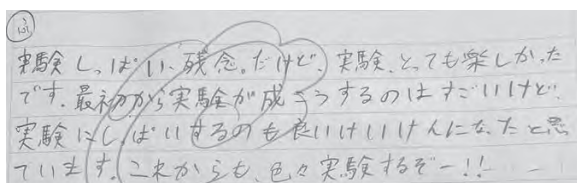 実験しっぱい、残念。だけど、実験、とっても楽しかった
です。最初から実験が成こうするのはすごいけど、
実験にしっぱいするのも良いけいけんになったと思
ています。これからも、色々実験するぞー!!